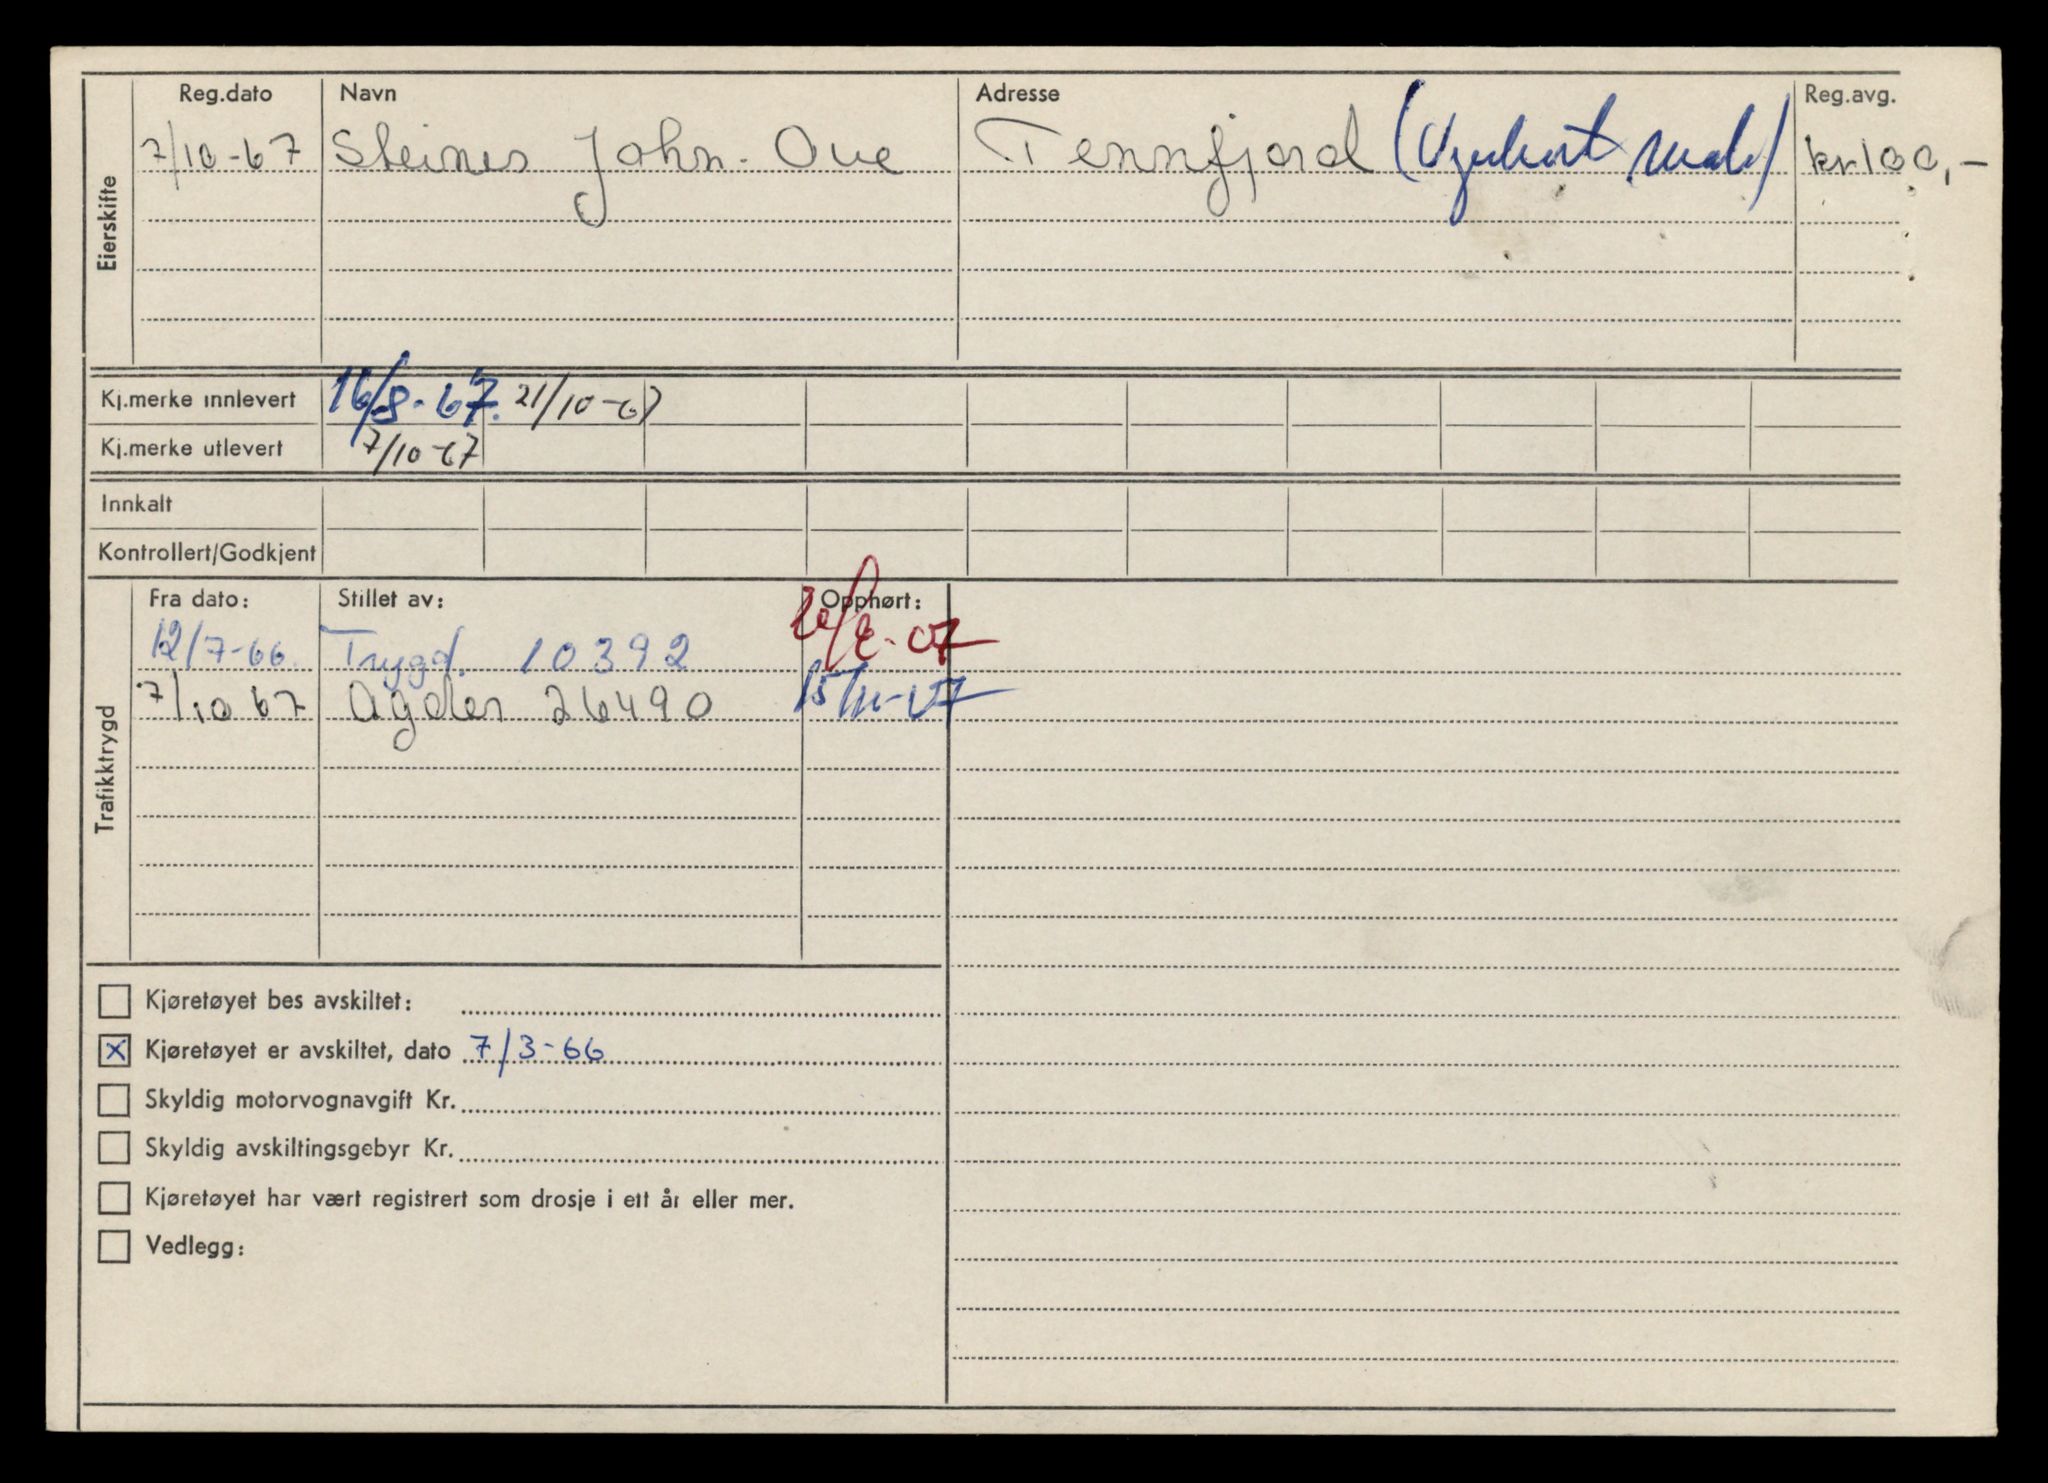 Eierskifte
Reg.dato Navn Adresse Reg.avg.
7/10-67 Steines John-Ove Tennfjord kr 100,-
Kj.merke innlevert 16/8-67. 21/10-67
Kj.merke utlevert 7/10-67
Innkalt
Kontrollert/Godkjent
Trafikktrygd
Fra dato: Stillet av: Opphørt:
12/7-66. Trygd. 10392
7/10 67 Agder 26490
Kjøretøyet bes avskiltet:
x Kjøretøyet er avskiltet, dato 7/3-66
Skyldig motorvognavgift Kr.
Skyldig avskiltingsgebyr Kr.
Kjøretøyet har vært registrert som drosje i ett år eller mer.
Vedlegg: